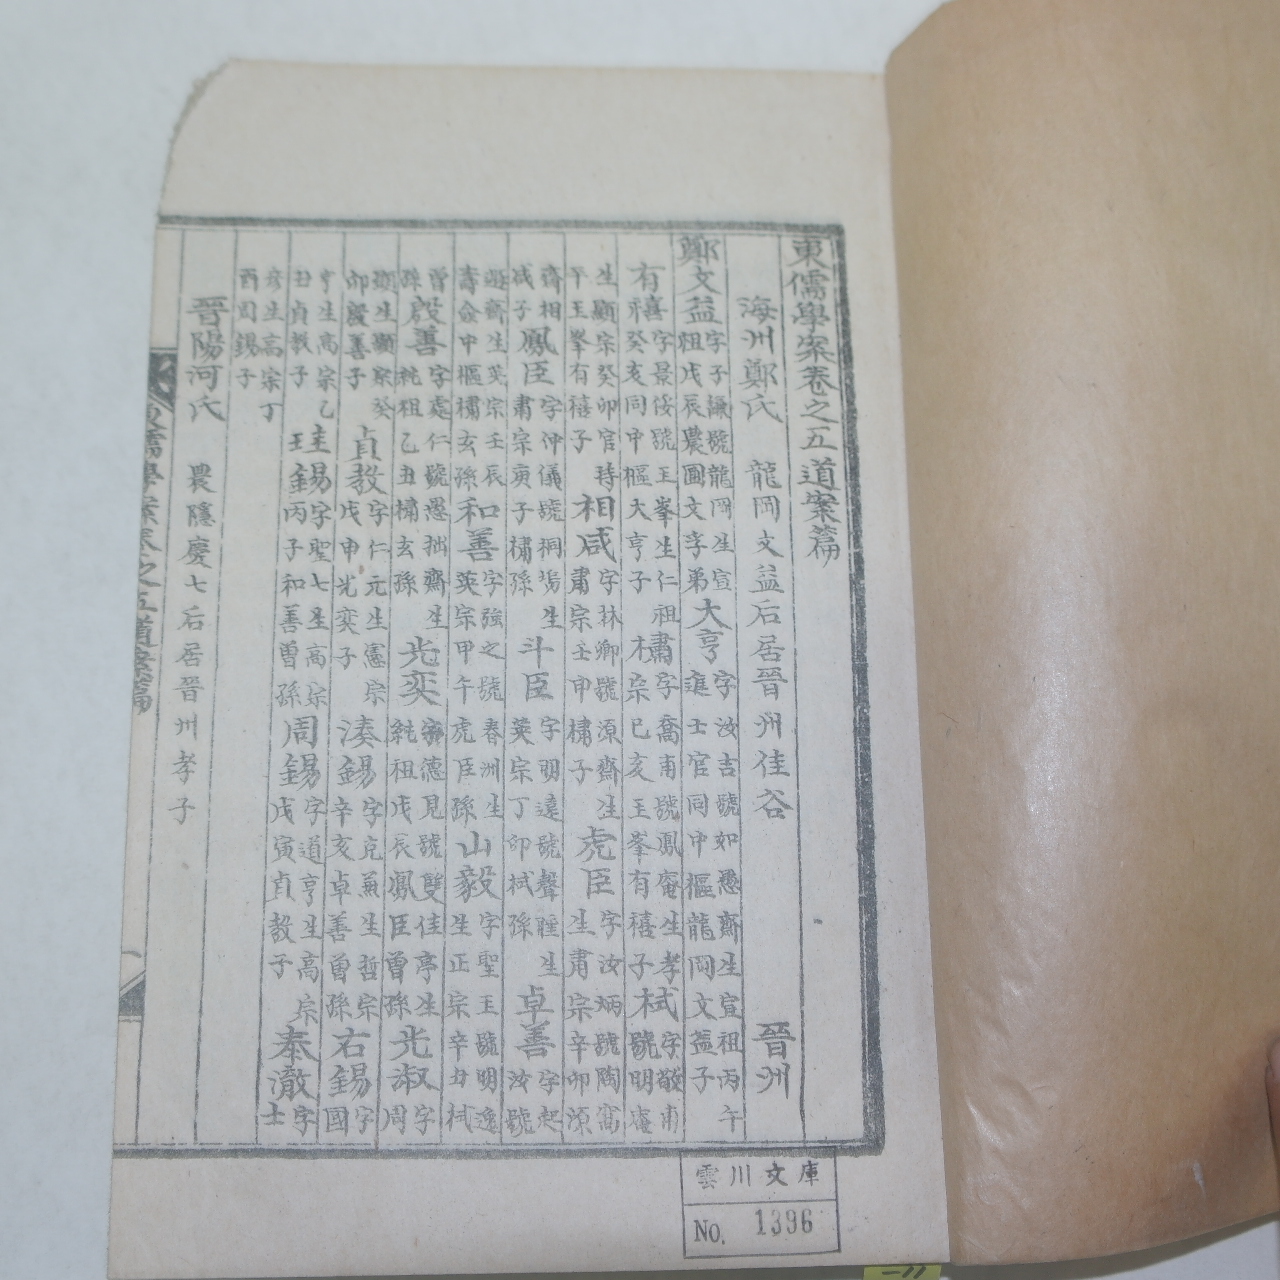 東儒學案卷之五 道案篇
海州鄭氏 龍岡文益后居晉州佳谷 晉州
鄭文益字子謙號龍岡生宣祖戊辰農圃文孚弟 大亨字汝吉號如愚齋生宣祖丙午進士官同中樞龍岡文益子
有禧字景綏號玉峯生仁祖癸亥同中樞大亨子 橚字喬甫號鳳庵生孝宗己亥玉峯有禧子 栻字敬甫號明庵
生顯宗癸卯官持平玉峯有禧子 相咸字林卿號源齋生肅宗壬申橚子 虎臣字汝炳號陶窩生肅宗辛卯源
齋相咸子 鳳臣字仲儀號桐塢生肅宗庚子橚孫 斗臣字明遠號聲睡生英宗丁卯栻孫 卓善字起汝號
遯齋生英宗壬辰壽僉中樞橚玄孫 和善字強之號春洲生英宗甲午虎臣孫 山毅字聖玉號明逸生正宗辛丑栻
曾孫 毅善字處仁號愚拙齋生純祖乙丑橚玄孫 光奕字德見號雙佳亭生純祖戊辰鳳臣曾孫 光淑字周
生顯宗癸卯毅善子 貞敎字仁元生憲宗戊申光奕子 湊錫字克兼生哲宗辛亥卓善曾孫 右錫字國
亨生高宗乙丑貞敎子 珪錫字聖七生高宗丙子和善曾孫 周錫字道亨生高宗戊寅貞敎子 泰澈字士
彦生高宗丁酉周錫子
晉陽河氏 農隱慶七后居晉州孝子
東儒學案卷之五 道案篇 一
雲川文庫
No. 1396